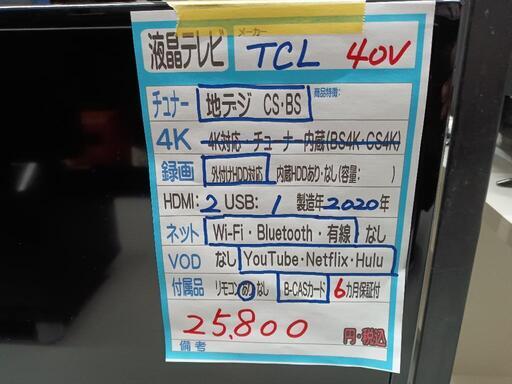 液晶テレビ メーカー TCL 40V
チュナー 地テジ CS・BS 商品特徴:
4K 4K対応・チューナー内蔵(BS4K・CS4K)
録画 外付けHDD対応 内蔵HDDあり・なし(容量: )
HDMI: 2 USB: 1 製造年2020年
ネット Wi-Fi・Bluetooth・有線 なし
VOD なし YouTube・Netflix・Hulu
付属品 リモコンあり なし B-CASカード 6カ月保証付
25,800 円・税込
備考